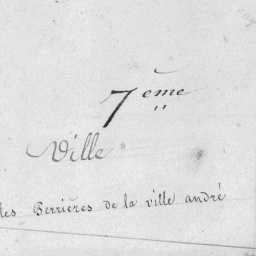 7ème
Ville
les Perrières de la ville andré